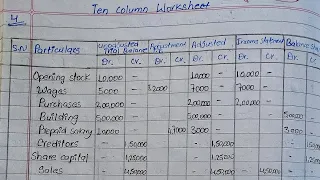 Ten Column Worksheet
4
S.N Particulars Unadjusted Trial Balance Adjustment Adjusted Income Statement Balance Sheet
Dr. Cr. Dr. Cr. Dr. Cr. Dr. Cr. Dr.
Opening stock 10,000 - - 10,000 - 10,000 -
Wages 5000 - 2000 7000 - 7000 -
Purchases 200,000 - 200,000 - 2,00,000 -
Building 500,000 - 500,000 - - 500,000
Prepaid salary 10,000 - 7000 3000 - - 3,000
Creditors - 1,50,000 - 1,50,000 -
Share capital - 1,25,000 - 1,25,000 -
Sales - 450,000 - 450,000 - 450,000